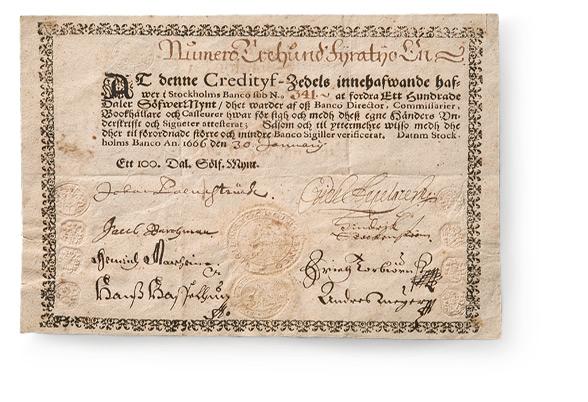 Numero Trehund Fyratijo En
AT denne Credityf-Zedels innehafwande haf-
wer i Stockholms Banco sub N.o 341. at fordra Ett Hundrade
Daler SölfwerMynt / dhet warder af oß Banco Director, Commissarier,
Bookhållare och Casseurer hwar för sigh och medh dheß egne Händers Un-
derskrift och Signeter attesterat; Såsom och til yttermehre wißo medh dhe
dher til förordnade större och mindre Banco Sigiller verificerat. Datum Stock-
holms Banco An. 1666 den 30. January
Ett 100. Dal. Sölf. Mynt.
Johan Palmstruch.
Jacob Bergman
Hans
Anders Meyer